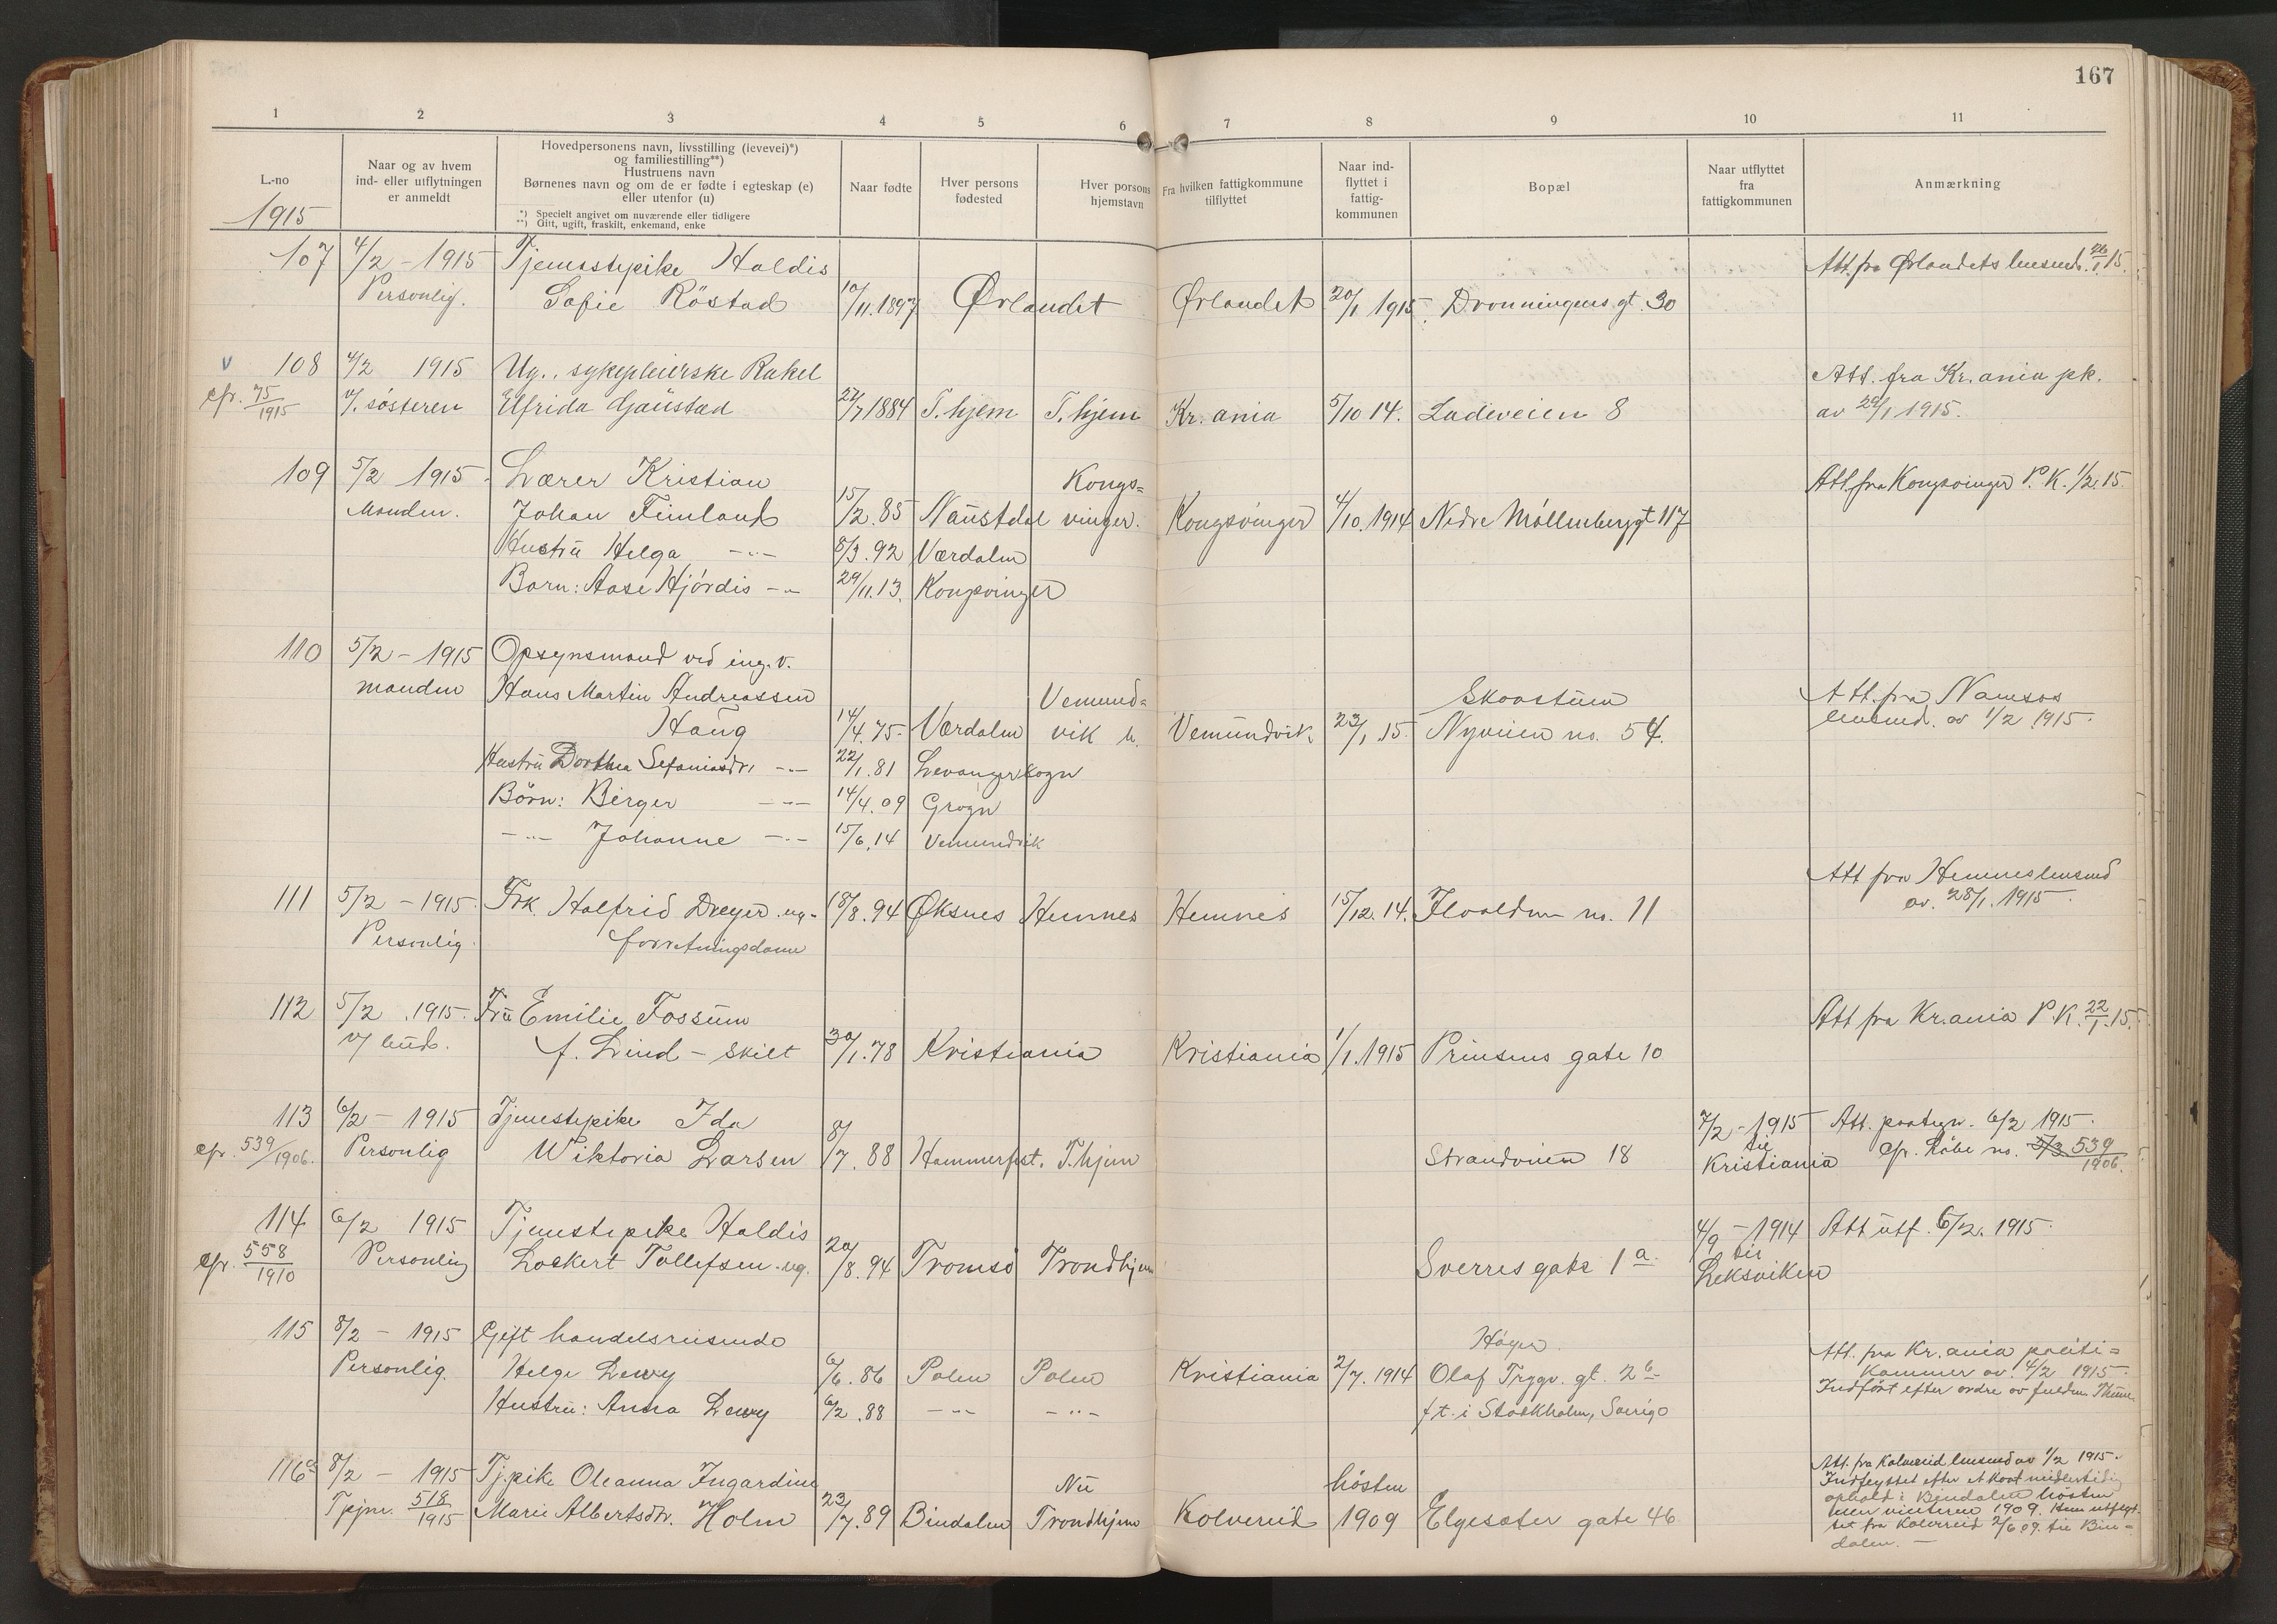 167
1 2 3 4 5 6 7 8 9 10 11
L.-no
1915
Naar og av hvem
ind- eller utflytningen
er anmeldt
Hovedpersonens navn, livsstilling (levevei)*)
og familiestilling**)
Hustruens navn
Børnenes navn og om de er fødte i egteskap (e)
eller utenfor (u)
*) Specielt angivet om nuværende eller tidligere
**) Gift, ugift, fraskilt, enkemand, enke
Naar fødte
Hver persons
fødested
Hver persons
hjemstavn
Fra hvilken fattigkommune
tilflyttet
Naar ind-
flyttet i
fattig-
kommunen
Bopæl
Naar utflyttet
fra
fattigkommunen
Anmærkning
107 4/2 - 1915 Tjenestepike Haldis Att. fra Ørlandets lensmd. 26/1 15.
Personlig. Sofie Röstad 10/11.1897 Ørlandet Ørlandet 20/1 1915. Dronningens gt. 30
v 108 4/2 1915 Ug. sykepleierske Rakel Att. fra Kr.ania pk.
cfr. 75/1915 v/. søsteren Elfrida Gaustad 27/7 1884 T.hjem T.hjem Kr.ania 5/10 14. Ladeveien 8 av 29/1 1915.
109 5/2 1915 Lærer Kristian Kongs= Att. fra Kongsvinger P.K. 1/2.15.
Manden. Johan Fimland 15/2.85 Naustdal vinger. Kongsvinger 4/10.1914 Nedre Möllenberggt 117
Hustru Helga -"- 8/3.92 Værdalen
Barn: Aase Hjördis -"- 29/11.13. Kongsvinger
110 5/2 - 1915 Opsynsmand ved ing. v.
manden Hans Martin Andreassen Vemund= Skaastuen Att. fra Namsos
Haug 14/4.75. Værdalen vik h. Vemundvik 23/1.15. Nyveien no. 54. lensmd. av 1/2 1915.
Hustru Dorthea Sefaniasdr. -"- 22/1.81 Levanger sogn
Börn: Birger -"- 14/4.09 Grogn
-"- Johanne -"- 15/6.14 Vemundvik
Att fra Hemnes lensmd
111 5/2 - 1915 Frk. Halfrid Dreyer ug. 18/8.94 Øksnes Hemnes Hemnes 15/12.14. Ilvolden no. 11 av. 28/1.1915.
Personlig. forretningsdame
112 5/2 .1915. Fru Emilie Fossum Att fra Kr.ania P.K. 22/1.15.
v/ bud. f. Lind - skilt 30/1.78 Kristiania Kristiania 1/1.1915 Prinsens gate 10
113 6/2 - 1915 Tjenestepike Ida 7/2 - 1915 Att. paategn. 6/2 1915.
cfr. 539/1906. Personlig Wiktoria Larsen 8/7.88 Hammerfest. T.hjem Strandveien 18 til Kristiania cfr. Löbe no. 539/1906.
114 6/2 1915 Tjenestepike Haldis 4/9 - 1914 Att utf. 6/2. 1915.
cfr. 558/1910 Personlig Lockert Tollefsen. ug. 20/8.94 Tromsö Trondhjem Sverres gate 1a. til Leksviken
115 8/2 - 1915 Gift handelsreisende Höyer. Att. fra Kr.ania politi=
Personlig. Helge Lewy 6/6.86 Polen Polen Kristiania 2/7.1914 Olaf Trygv. gt. 2b kammer av. 4/2 1915.
Hustru: Anna Lewy 6/2.88 -"- -"- f.t. i Stockholm, Sverige Indfört efter ordre av fuldm. Thune
116a 8/2 - 1915 Tj.pike Oleanna Ingardine Nu hösten Att. fra Kolvereid lensmd av 1/2 1915.
Tpjm. 518/1915 Marie Albertsdtr. Holm 23/7.89 Bindalen Trondhjem Kolvereid 1909 Elgesæter gate 46 Indflyttet efter et kort midlertidig
ophold i Bindalen hösten
eller vinteren 1909. Hun utflyt-
tet fra Kolvereid 2/6 09. til Bin-
dalen. -